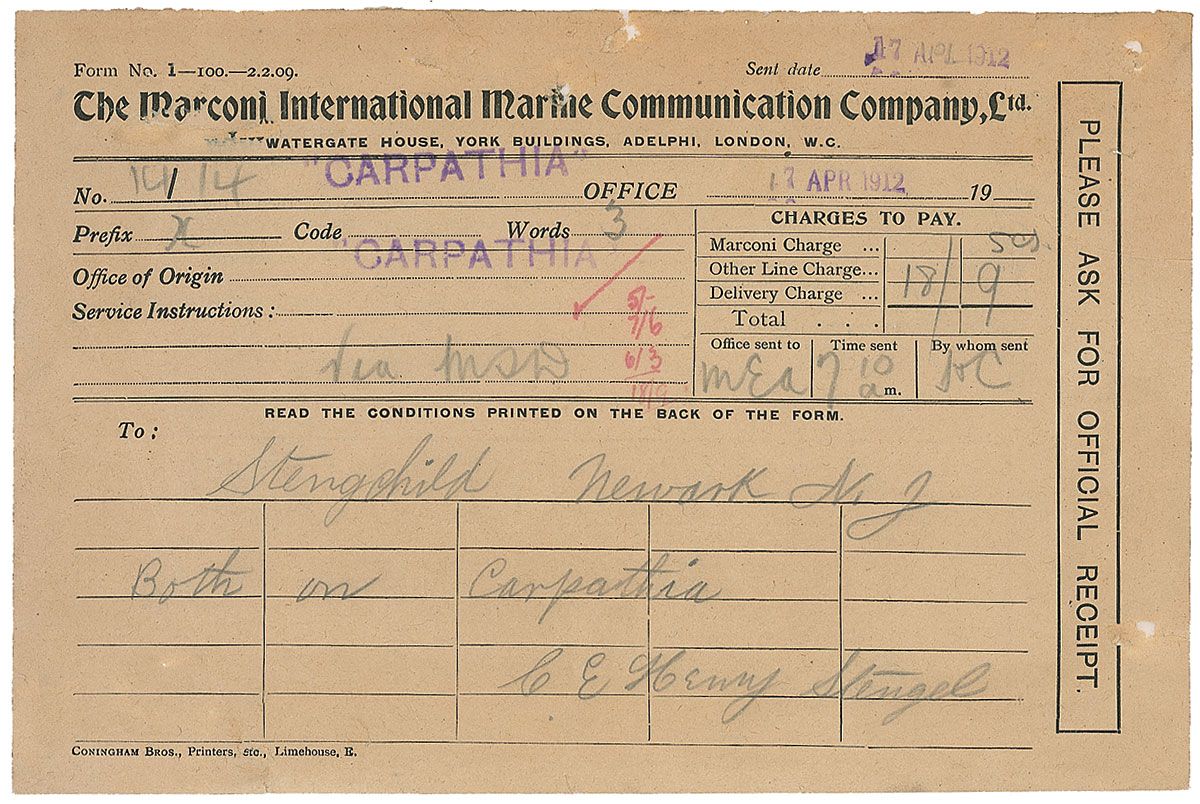 Form No. 1—100.—2.2.09.
Sent date 17 APR 1912
The Marconi International Marine Communication Company, Ltd.
WATERGATE HOUSE, YORK BUILDINGS, ADELPHI, LONDON, W.C.
No. 14 "CARPATHIA" OFFICE 17 APR 1912 19
Prefix X Code Words 3
CHARGES TO PAY.
Marconi Charge ...
Other Line Charge...
Delivery Charge ...
Total . . . 18/9
Office of Origin "CARPATHIA"
Service Instructions :
5/-
7/6
6/3
18/9
via MSD
Office sent to Time sent By whom sent
MEA 7 10 a m.
READ THE CONDITIONS PRINTED ON THE BACK OF THE FORM.
To :
Stengchild Newark N J
Both on Carpathia
C E Henry Stengel
CONINGHAM BROS., Printers, etc., Limehouse, E.
PLEASE ASK FOR OFFICIAL RECEIPT.